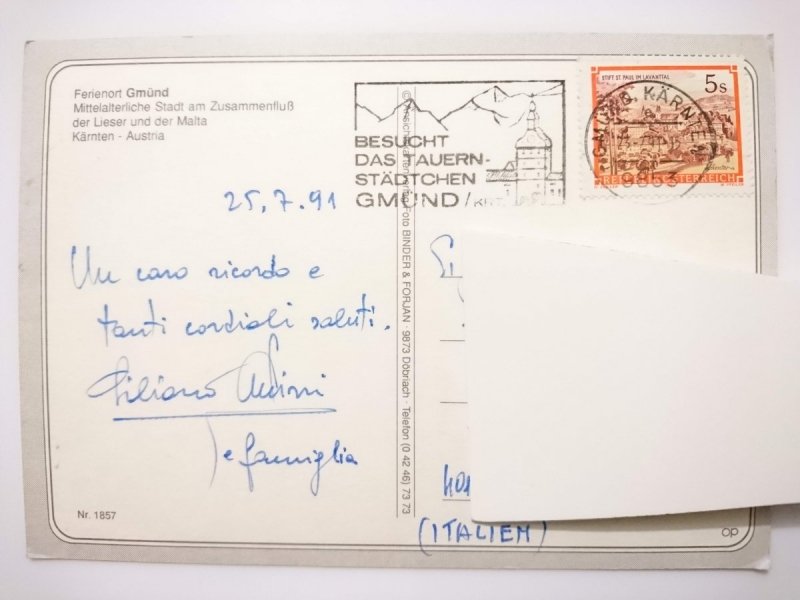 Ferienort Gmünd
Mittelalterliche Stadt am Zusammenfluß
der Lieser und der Malta
Kärnten - Austria
BESUCHT
DAS TAUERN-
STÄDTCHEN
GMÜND
STIFT ST. PAUL IM LAVANTTAL
5s
REPUBLIK ÖSTERREICH
9853
25.7.91
Un caro ricordo e
tanti cordiali saluti.
e famiglia
Nr. 1857
BINDER & FORJAN · 9873 Döbriach · Telefon (0 42 46) 73 73
(ITALIEN)
op